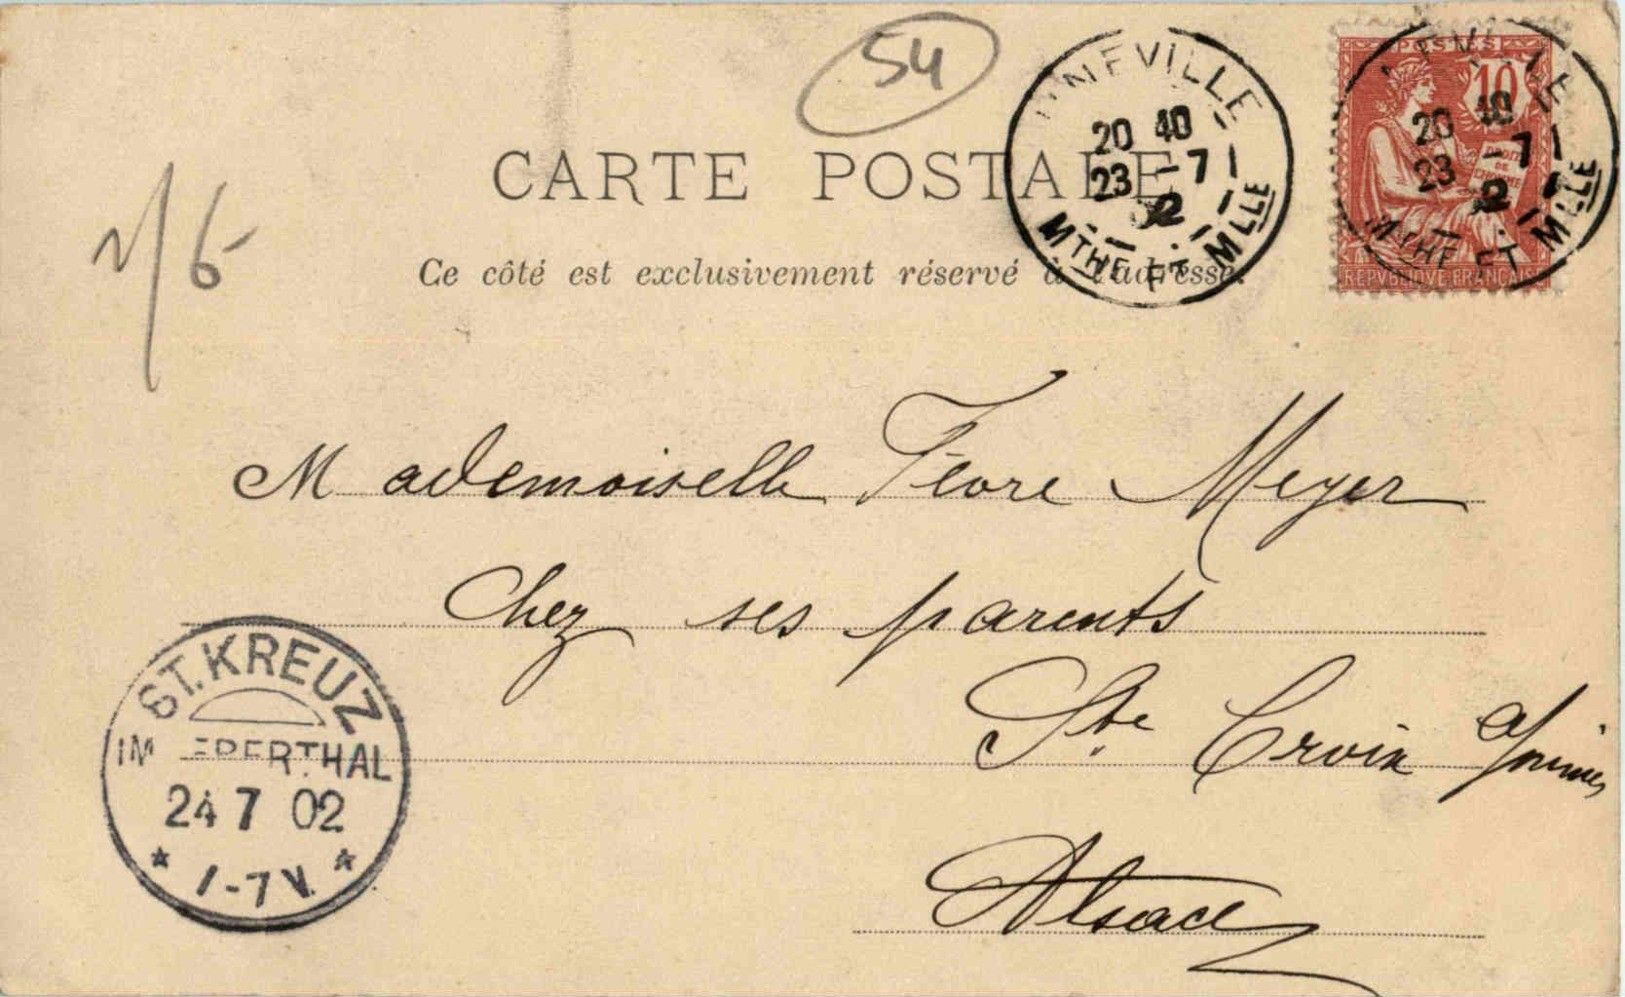 54
CARTE POSTALE
Ce côté est exclusivement réservé à l'adresse.
NEVILLE
20 40
23 -7
2
MTHE ET MLLE
POSTES
10
REPVBLIQVE FRANÇAISE
20 40
23 -7
2
MTHE ET MLLE
Mademoiselle Meyer
Chez ses parents
Ste Croix
Alsace
ST. KREUZ
IM LEBERTHAL
24 7 02
* 1-7 V. *